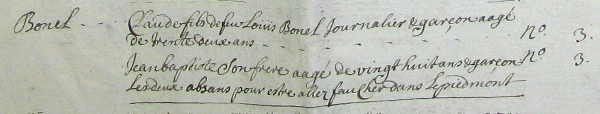 Bonel - - Claude fils de feu Loüis Bonel Journalier & garçon aagé
de trente deux ans - - - - - - - - - - N.o 3.
Jean baptiste son frere aagé de vingt huit ans & garçon N.o 3.
Les deux absans pour estre aller faucher dans Le piedmont